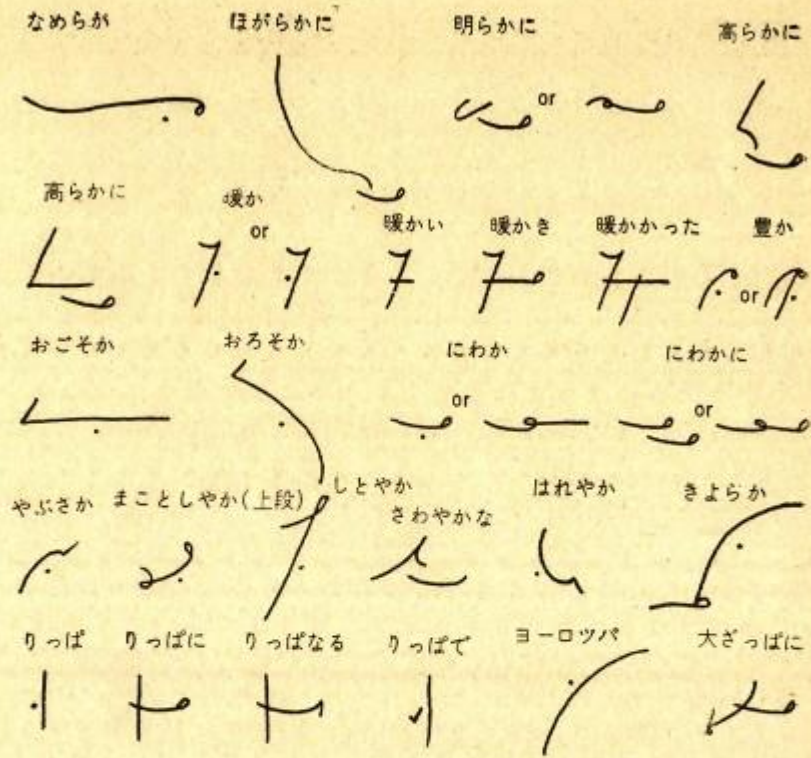 なめらか ほがらかに 明らかに 高らかに
or
高らかに 暖か 暖かい 暖かき 暖かかった 豊か
or or
おごそか おろそか にわか にわかに
or or
やぶさか まことしやか(上段) しとやか さわやかな はれやか きよらか
りっぱ りっぱに りっぱなる りっぱで ヨーロツパ 大ざっぱに